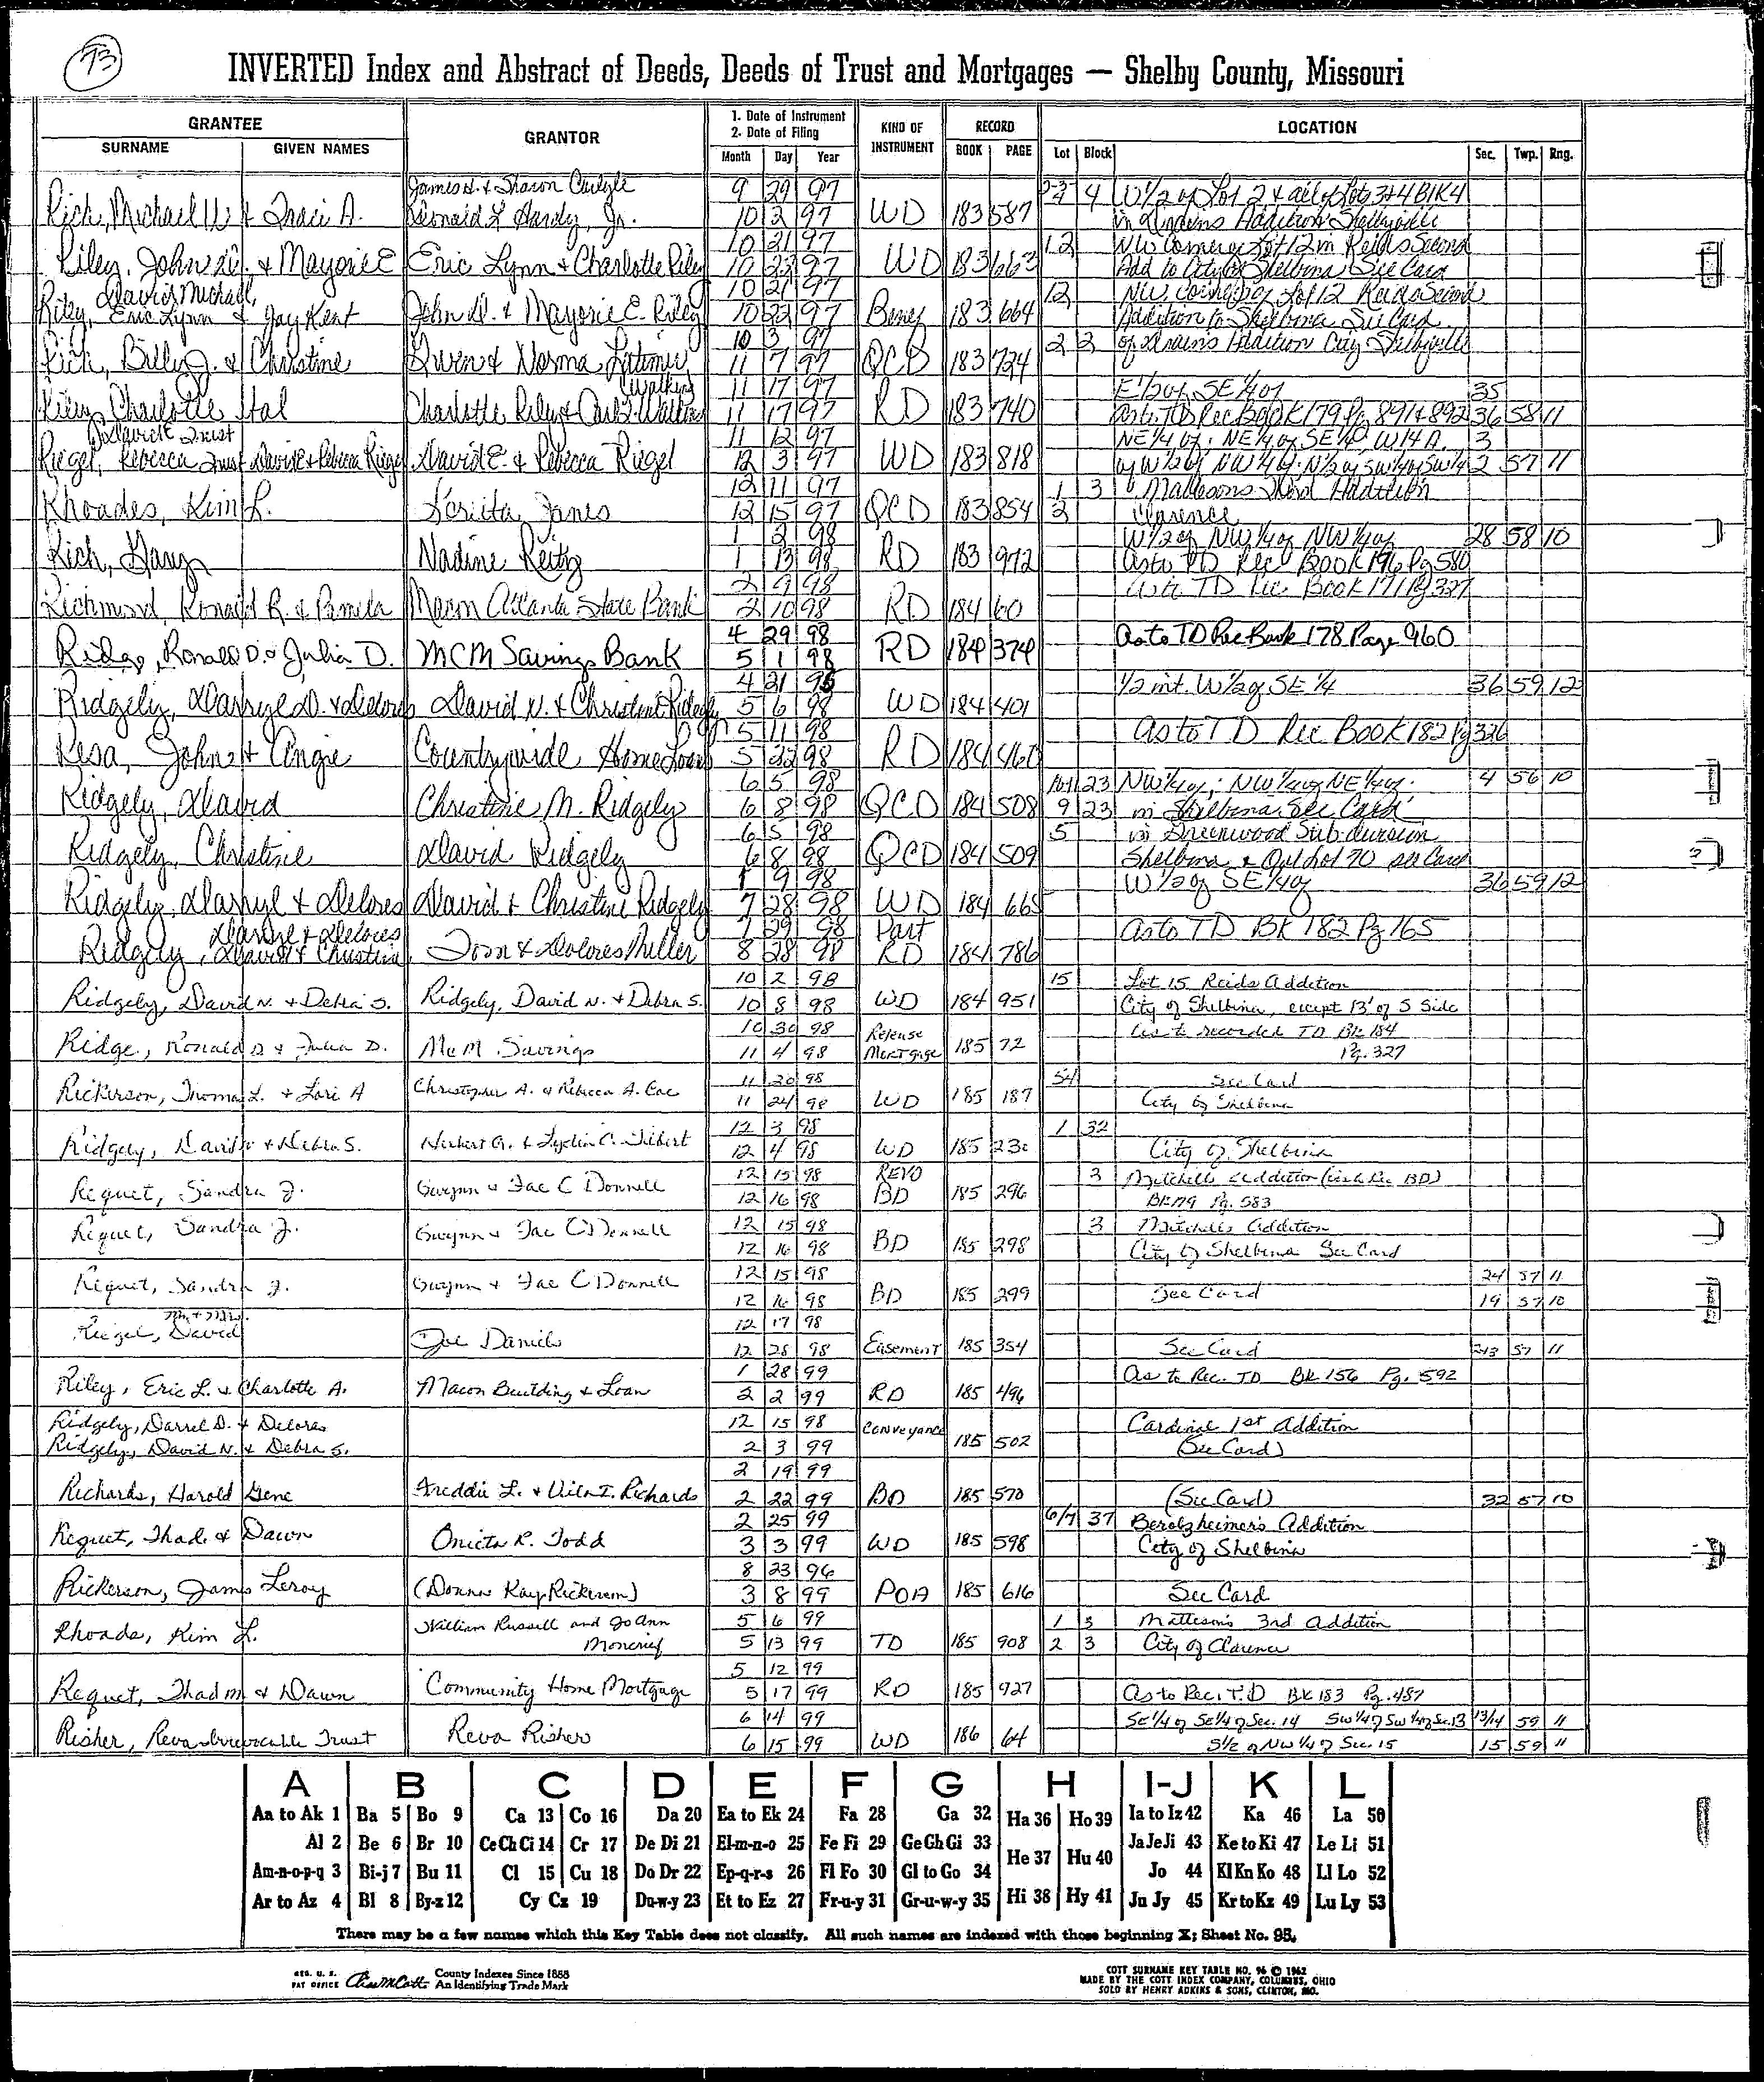 73
INVERTED Index and Abstract of Deeds, Deeds of Trust and Mortgages — Shelby County, Missouri
GRANTEE
SURNAME GIVEN NAMES GRANTOR 1. Date of Instrument 2. Date of Filing Month Day Year KIND OF INSTRUMENT RECORD BOOK PAGE LOCATION Lot Block Sec. Twp. Rng.
James D. & Sharon Carlyle 9 29 97 2-3-4 4 W 1/2 of Lot 2 & all of Lots 3+4 Blk 4
Rich, Michael W & Traci A. Ronald L Hardy, Jr. 10 2 97 WD 183 587 in Addition Shelbyville
10 21 97 12 NW Corner of Lot 12 in Reids Second
Riley, John D. & Mayorie E Eric Lynn & Charlotte Riley 10 23 97 WD 183 663 Add to City of Shelbina See Card
David Michael, 10 21 97 12 NW Corner of Lot 12 Reids Second
Riley, Eric Lynn & Jay Kent John D. & Mayorie E. Riley 10 23 97 Benef 183 664 Addition to Shelbina See Card
10 3 97 2 2 of Addition City Shelbyville
Rich, Billy J. & Christine Owen & Norma Latimer 11 7 97 QCD 183 724
(Walker) 11 17 97 E 1/2 of SE 1/4 of 35
Riley, Charlotte etal Charlotte Riley & Carl 11 17 97 RD 183 740 As to TD Rec Book 179 Pg 891+892 36 58 11
David E Trust 11 12 97 NE 1/4 of; NE 1/4 of SE 1/4 of W 14 A. 3
Riegel, Rebecca Trust David E & Rebecca Riegel David E. & Rebecca Riegel 12 3 97 WD 183 818 of W 1/2 of NW 1/4 of; N 1/2 of SW 1/4 of SW 1/4 2 57 11
12 11 97 1 3 Mattesons Third Addition
Rhoades, Kim L. Janes 12 15 97 QCD 183 854 2 Clarence
1 2 98 W 1/2 of NW 1/4 of NW 1/4 of 28 58 10
Rich, Gary Nadine Reitz 1 13 98 RD 183 972 As to TD Rec Book 176 Pg 580
2 9 98 As to TD Rec Book 171 Pg 327
Richmond, Ronald R. & Pamela Macon Atlanta State Bank 2 10 98 RD 184 60
4 29 98 As to TD Rec Book 178 Page 960
Ridge, Ronald D. & Julia D. MCM Savings Bank 5 1 98 RD 184 374
4 21 98 1/2 int. W 1/2 of SE 1/4 36 59 12
Ridgely, Darryl D. & Delores David N. & Christine Ridgely 5 6 98 WD 184 401
5 11 98 As to TD Rec Book 182 Pg 326
Resa, John & Angie Countrywide Home Loans 5 22 98 RD 184 460
6 5 98 10+1 23 NW 1/4 of; NW 1/4 of NE 1/4 of 4 56 10
Ridgely, David Christine M. Ridgely 6 8 98 QCD 184 508 9 23 in Shelbina See Card
6 5 98 5 in Greenwood Subdivision
Ridgely, Christine David Ridgely 6 8 98 QCD 184 509 Shelbina & Outlot 70 see Card
1 9 98 W 1/2 of SE 1/4 of 36 59 12
Ridgely, Darryl & Delores David & Christine Ridgely 7 28 98 WD 184 665
Darryl & Delores 7 29 98 Part As to TD Bk 182 Pg 165
Ridgely, David & Christine Tom & Dolores Miller 8 28 98 RD 184 786
10 2 98 15 Lot 15 Reids Addition
Ridgely, David N. & Debra S. Ridgely, David N. & Debra S. 10 8 98 WD 184 951 City of Shelbina, except 13' of S Side
10 30 98 Release As to recorded TD Bk 184
Ridge, Ronald D & Julia D. McM Savings 11 4 98 Mortgage 185 72 Pg. 327
11 20 98 54 See Card
Rickerson, Thomas L. & Lori A Christopher A. & Rebecca A. 11 24 98 WD 185 187 City of Shelbina
12 3 98 1 32
Ridgely, David N & Debra S. Herbert G. & Lydia C. 12 4 98 WD 185 230 City of Shelbina
12 15 98 REVO 3 Mitchells Addition (as to Rec BD)
Requet, Sandra J. Gwynn & Fae C Donnell 12 16 98 BD 185 296 Bk 179 Pg. 583
12 15 98 3 Mitchells Addition
Requet, Sandra J. Gwynn & Fae O'Donnell 12 16 98 BD 185 298 City of Shelbina See Card
12 15 98 24 57 11
Requet, Sandra J. Gwynn & Fae C Donnell 12 16 98 BD 185 299 See Card 19 57 10
Mr. & Mrs. 12 17 98
Riegel, David Joe Daniels 12 28 98 Easement 185 354 See Card 2+3 57 11
1 28 99 As to Rec. TD Bk 156 Pg. 592
Riley, Eric L. & Charlotte A. Macon Building & Loan 2 2 99 RD 185 496
Ridgely, Darrel D. & Delores 12 15 98 Conveyance Cardinal 1st Addition
Ridgely, David N. & Debra S. 2 3 99 185 502 (See Card)
2 19 99
Richards, Harold Gene Freddie L. & Vila I. Richards 2 22 99 BD 185 570 (See Card) 32 57 10
2 25 99 6/7 37 Berolzheimer's Addition
Requet, Thad. & Dawn Oneta R. Todd 3 3 99 WD 185 598 City of Shelbina
8 23 96
Rickerson, James Leroy (Donna Kay Rickerson) 3 8 99 POA 185 616 See Card
William Russell and Jo Ann 5 6 99 1 3 Matteson's 3rd Addition
Rhoads, Kim L. Moncrief 5 13 99 TD 185 908 2 3 City of Clarence
5 12 99
Requet, Thad M & Dawn Community Home Mortgage 5 17 99 RD 185 927 As to Rec. T.D Bk 183 Pg. 487
6 14 99 SE 1/4 of SE 1/4 of Sec. 14 SW 1/4 of SW 1/4 of Sec. 13 13/14 59 11
Risher, Reva Irrevocable Trust Reva Risher 6 15 99 WD 186 64 S 1/2 of NW 1/4 of Sec. 15 15 59 11
A B C D E F G H I-J K L
Aa to Ak 1 Ba 5 Bo 9 Ca 13 Co 16 Da 20 Ea to Ek 24 Fa 28 Ga 32 Ha 36 Ho 39 Ia to Iz 42 Ka 46 La 50
Al 2 Be 6 Br 10 Ce Ch Ci 14 Cr 17 De Di 21 El-m-n-o 25 Fe Fi 29 Ge Gh Gi 33 He 37 Hu 40 Ja Je Ji 43 Ke to Ki 47 Le Li 51
Am-n-o-p-q 3 Bi-j 7 Bu 11 Cl 15 Cu 18 Do Dr 22 Ep-q-r-s 26 Fl Fo 30 Gl to Go 34 Jo 44 Kl Kn Ko 48 Ll Lo 52
Ar to Az 4 Bl 8 By-z 12 Cy Cz 19 Du-w-y 23 Et to Ez 27 Fr-u-y 31 Gr-u-w-y 35 Hi 38 Hy 41 Ju Jy 45 Kr to Kz 49 Lu Ly 53
There may be a few names which this Key Table does not classify. All such names are indexed with those beginning X; Sheet No. 95.
REG. U. S. PAT OFFICE County Indexes Since 1888 An Identifying Trade Mark
COTT SURNAME KEY TABLE NO. 96 © 1962
MADE BY THE COTT INDEX COMPANY, COLUMBUS, OHIO
SOLD BY HENRY ADKINS & SONS, CLINTON, MO.